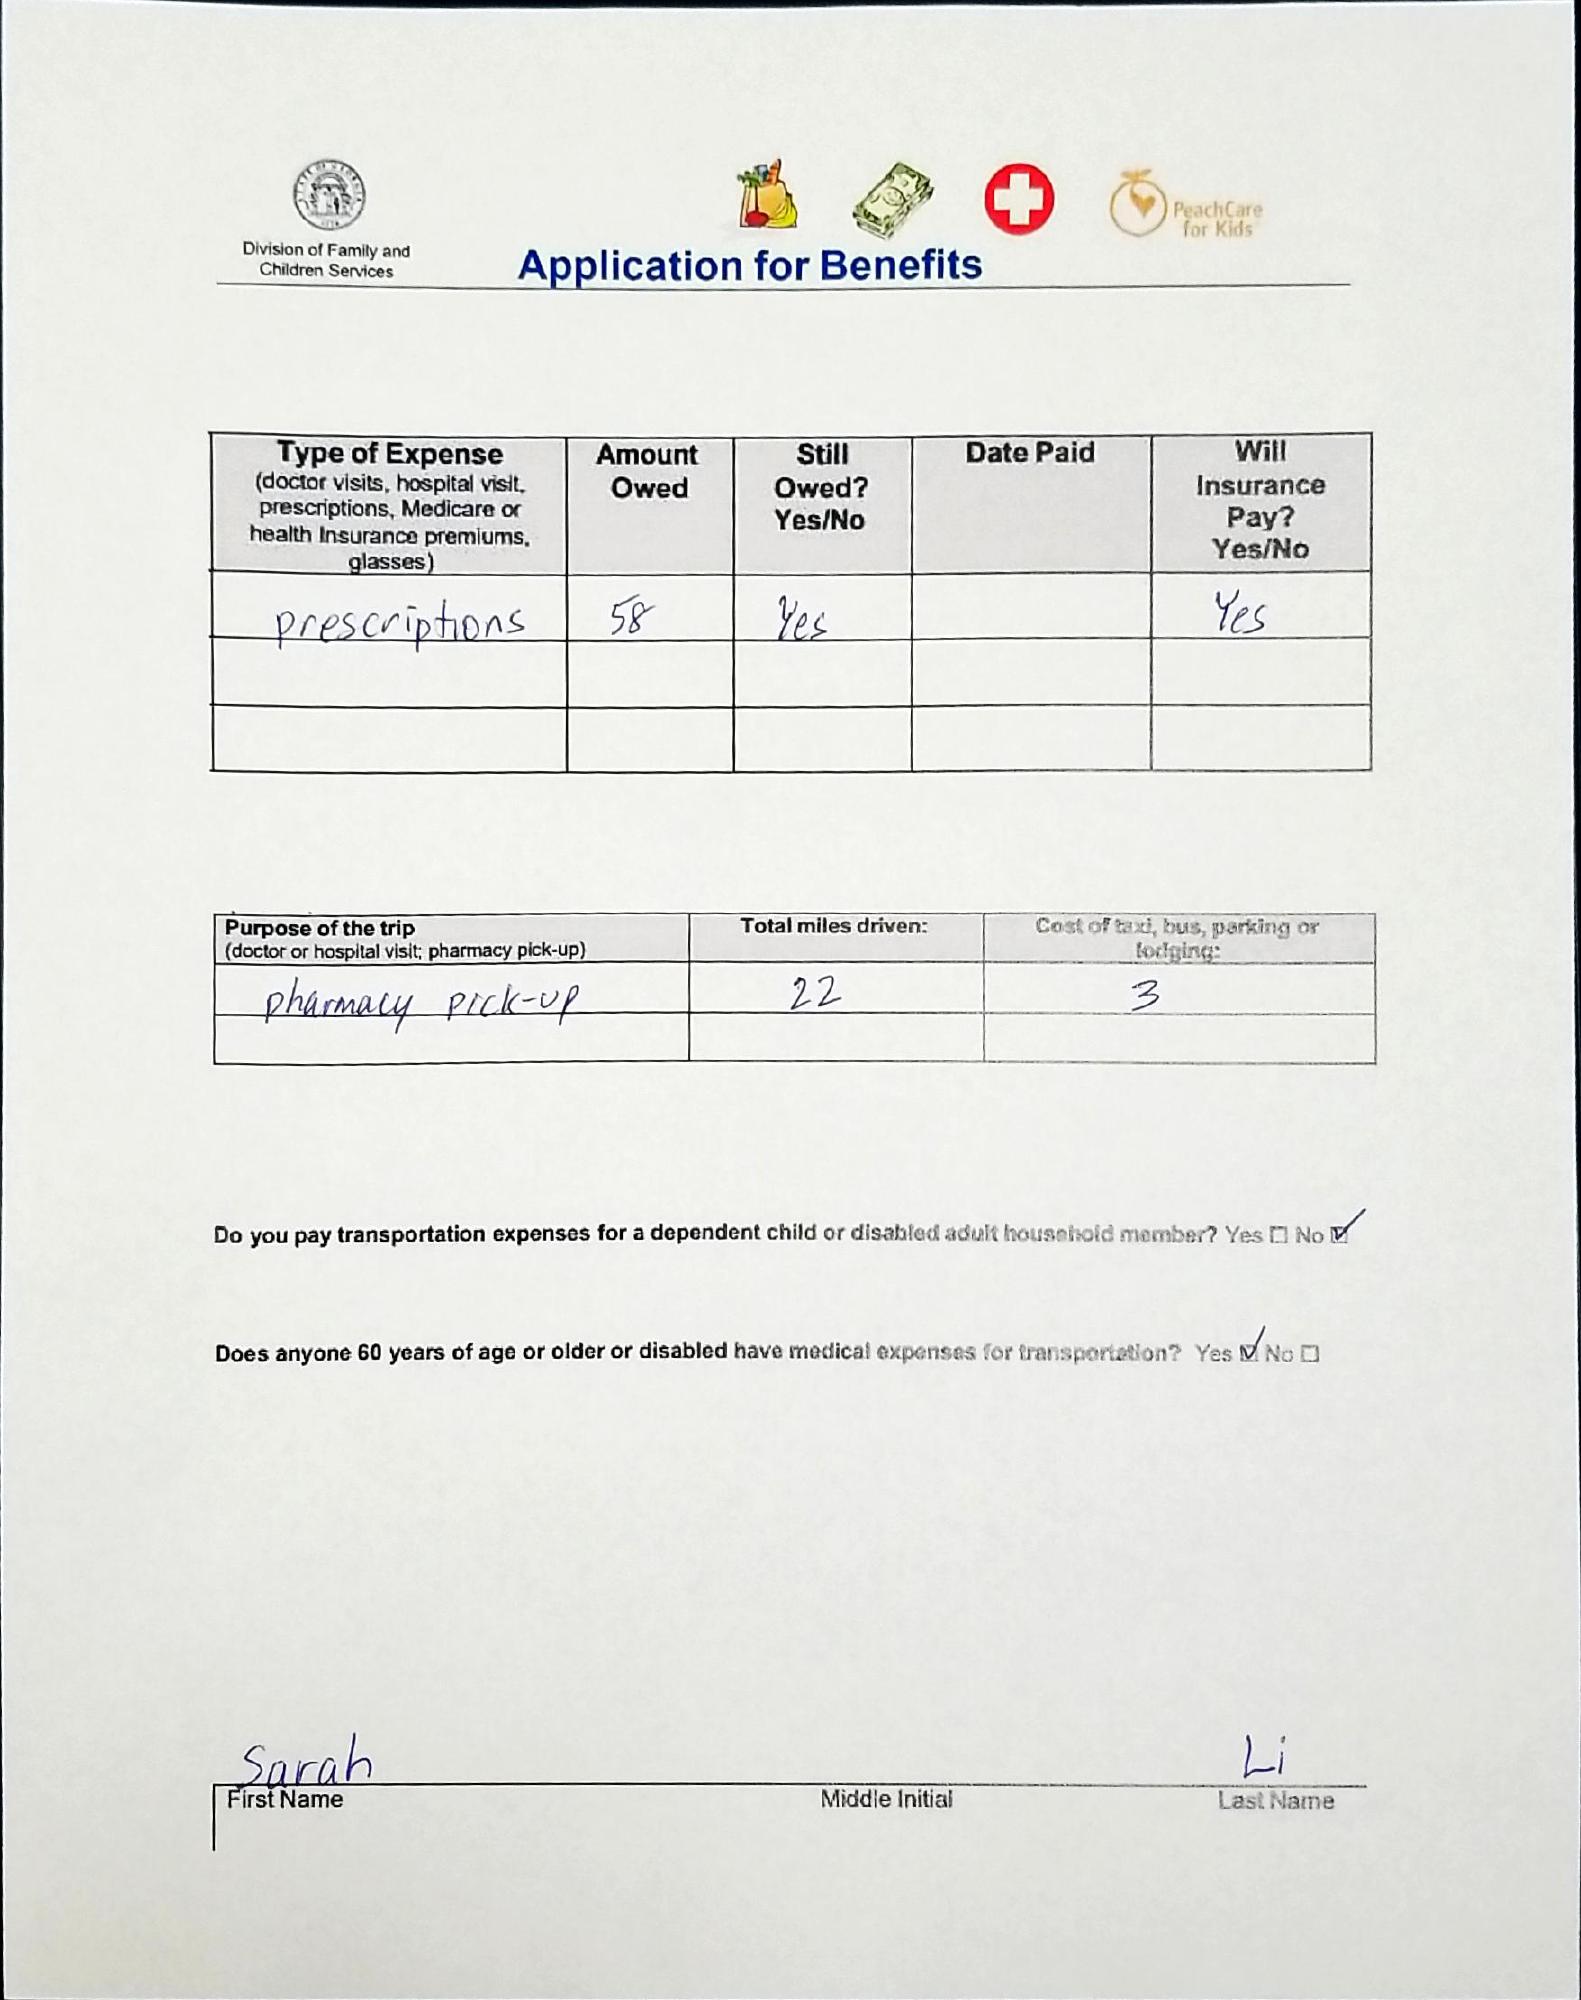 Division of Family and
Children Services
PeachCare
for Kids
Application for Benefits
Type of Expense
(doctor visits, hospital visit,
prescriptions, Medicare or
health Insurance premiums,
glasses)
Amount
Owed
Still
Owed?
Yes/No
Date Paid
Will
Insurance
Pay?
Yes/No
prescriptions 58 Yes Yes
Purpose of the trip
(doctor or hospital visit; pharmacy pick-up)
Total miles driven:
Cost of taxi, bus, parking or
lodging:
pharmacy pick-up 22 3
Do you pay transportation expenses for a dependent child or disabled adult household member? Yes ☐ No ☑
Does anyone 60 years of age or older or disabled have medical expenses for transportation? Yes ☑ No ☐
Sarah Li
First Name Middle Initial Last Name